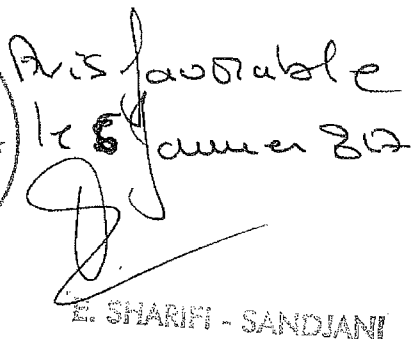 Avis favorable
le 6 Janvier 2017
E. SHARIFI - SANDJANI